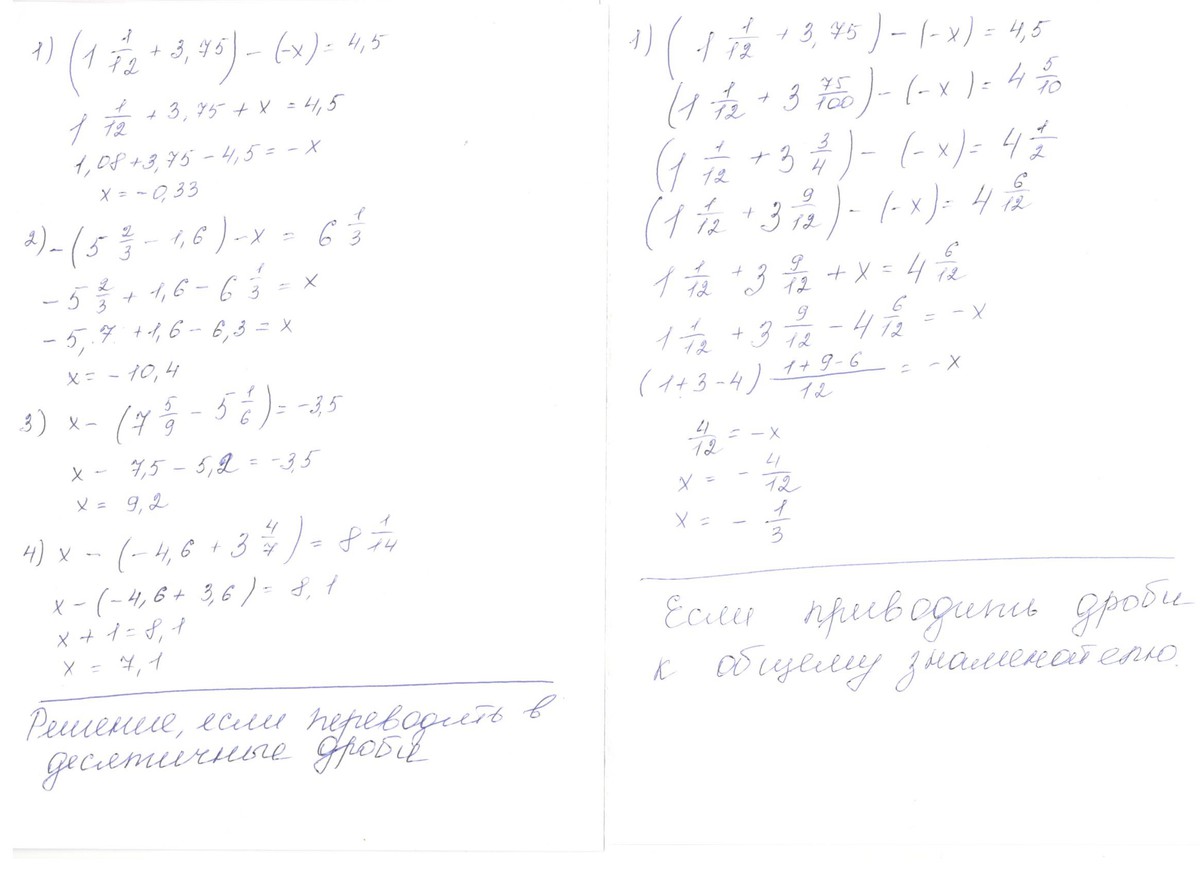 1) (1 1/12 + 3,75) - (-x) = 4,5
1 1/12 + 3,75 + x = 4,5
1,08 + 3,75 - 4,5 = -x
x = -0,33
2) -(5 2/3 - 1,6) - x = 6 1/3
-5 2/3 + 1,6 - 6 1/3 = x
-5,7 + 1,6 - 6,3 = x
x = -10,4
3) x - (7 5/9 - 5 1/6) = -3,5
x - 7,5 - 5,2 = -3,5
x = 9,2
4) x - (-4,6 + 3 4/7) = 8 1/14
x - (-4,6 + 3,6) = 8,1
x + 1 = 8,1
x = 7,1
Решение, если переводить в
десятичные дроби
1) (1 1/12 + 3,75) - (-x) = 4,5
(1 1/12 + 3 75/100) - (-x) = 4 5/10
(1 1/12 + 3 3/4) - (-x) = 4 1/2
(1 1/12 + 3 9/12) - (-x) = 4 6/12
1 1/12 + 3 9/12 + x = 4 6/12
1 1/12 + 3 9/12 - 4 6/12 = -x
(1+3-4) (1+9-6)/12 = -x
4/12 = -x
x = -4/12
x = -1/3
Если приводить дроби
к общему знаменателю.